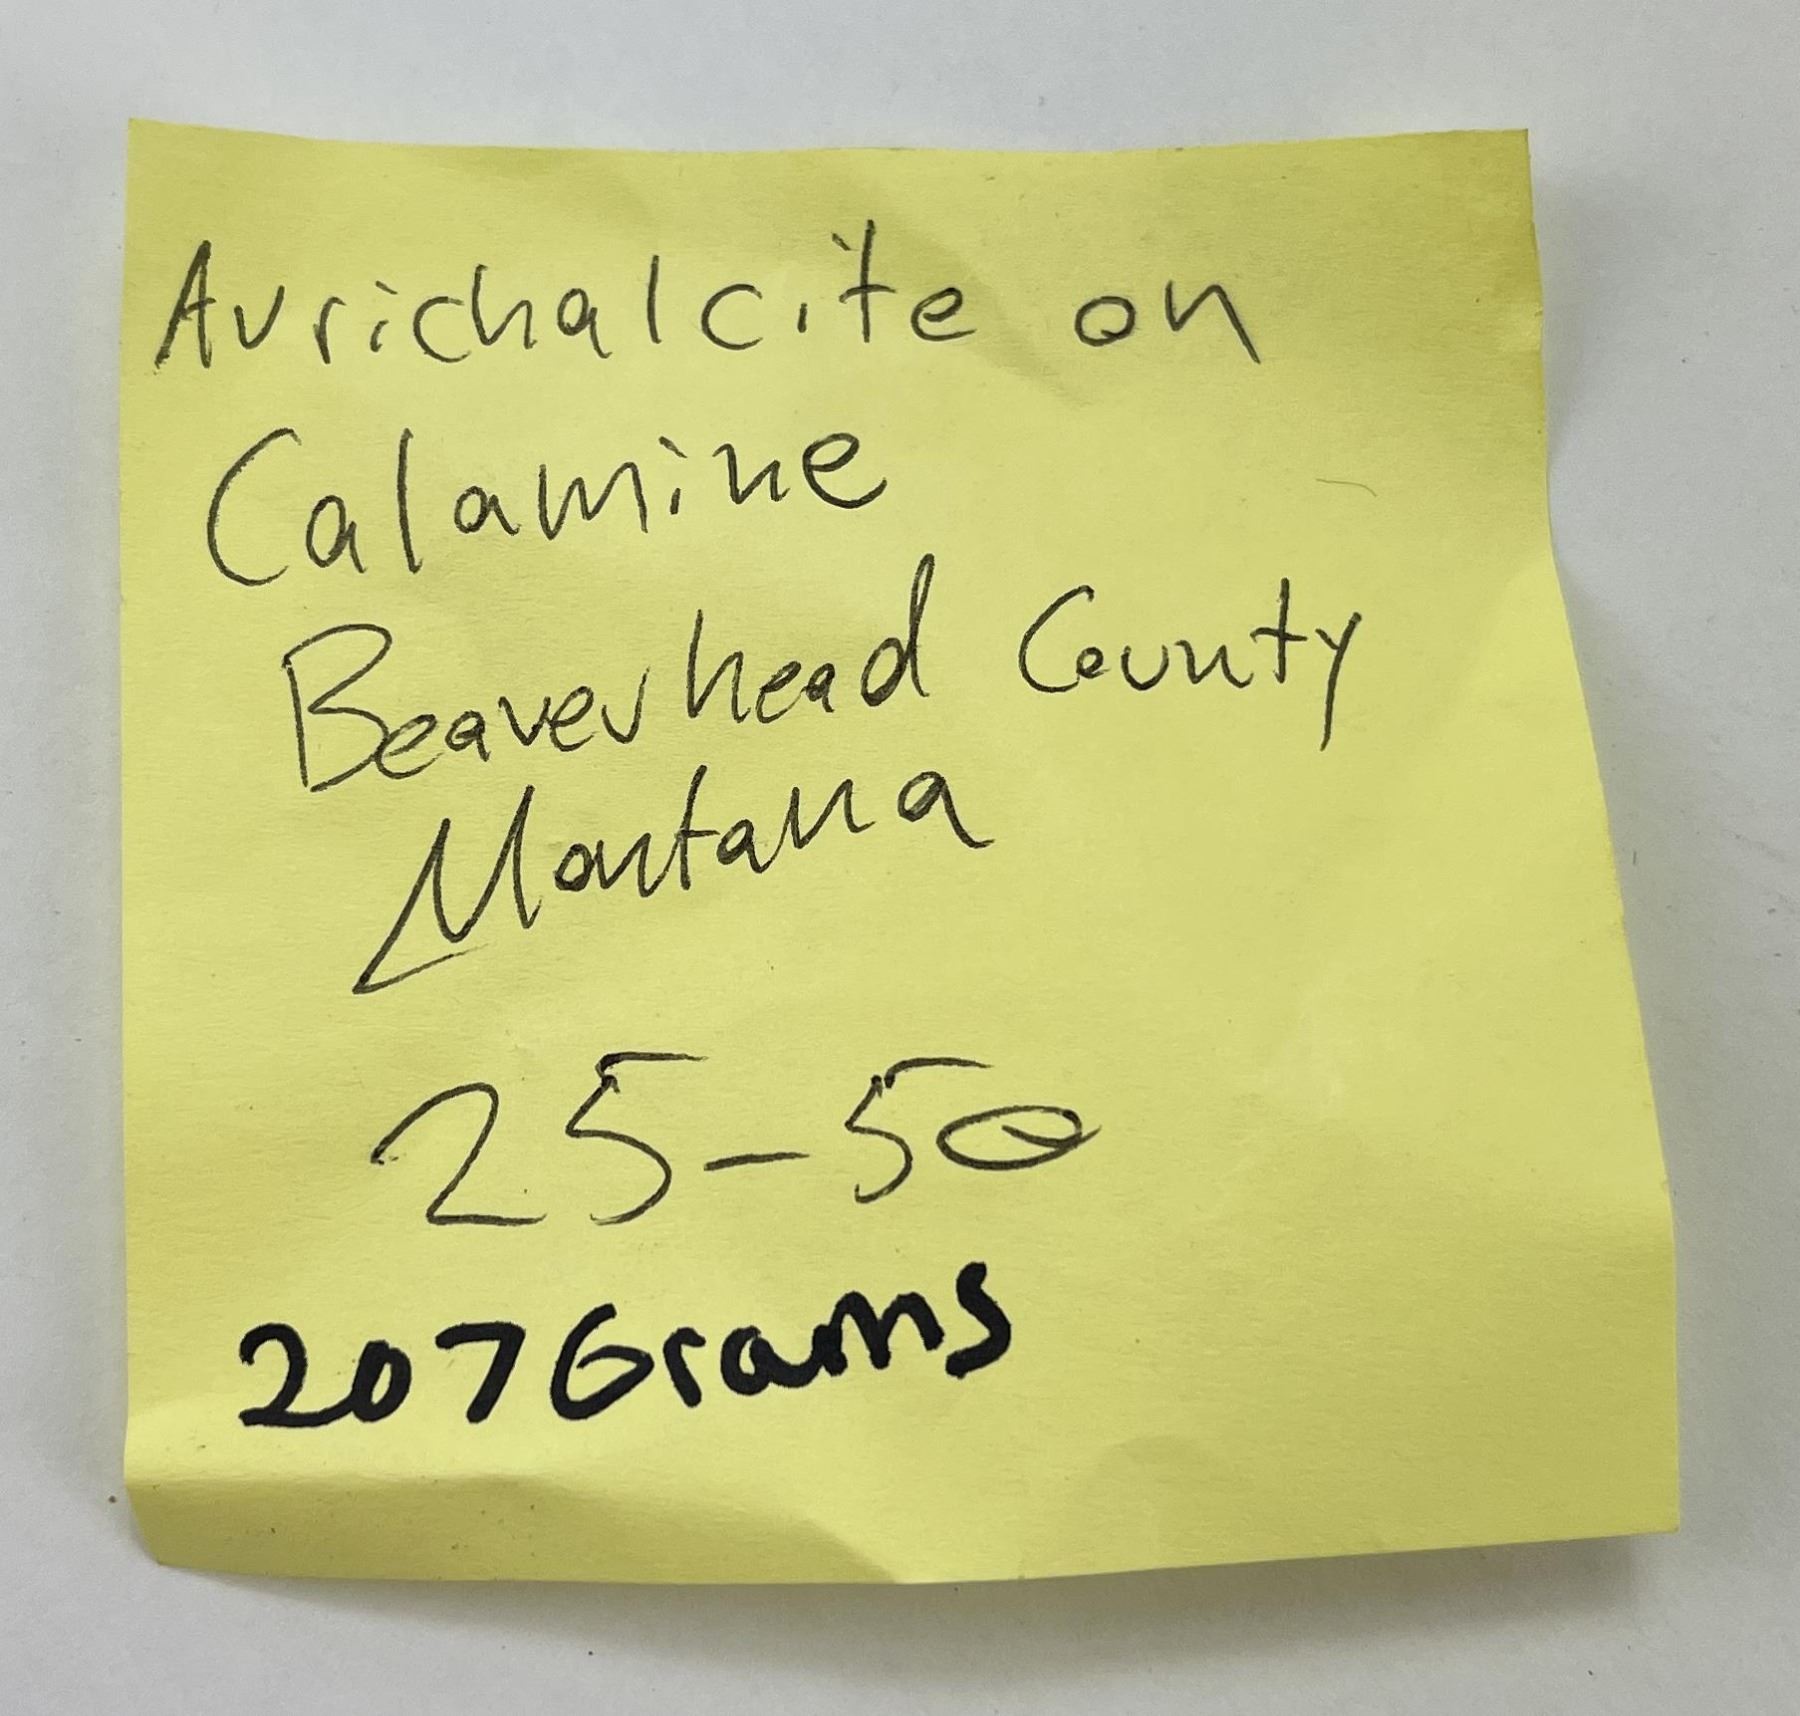 Aurichalcite on
Calamine
Beaverhead County
Montana
25-50
207 Grams